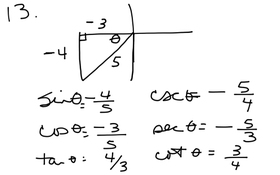 13.
-3
θ
-4
5
sinθ = -4/5 cscθ = -5/4
cosθ = -3/5 secθ = -5/3
tanθ: 4/3 cotθ = 3/4